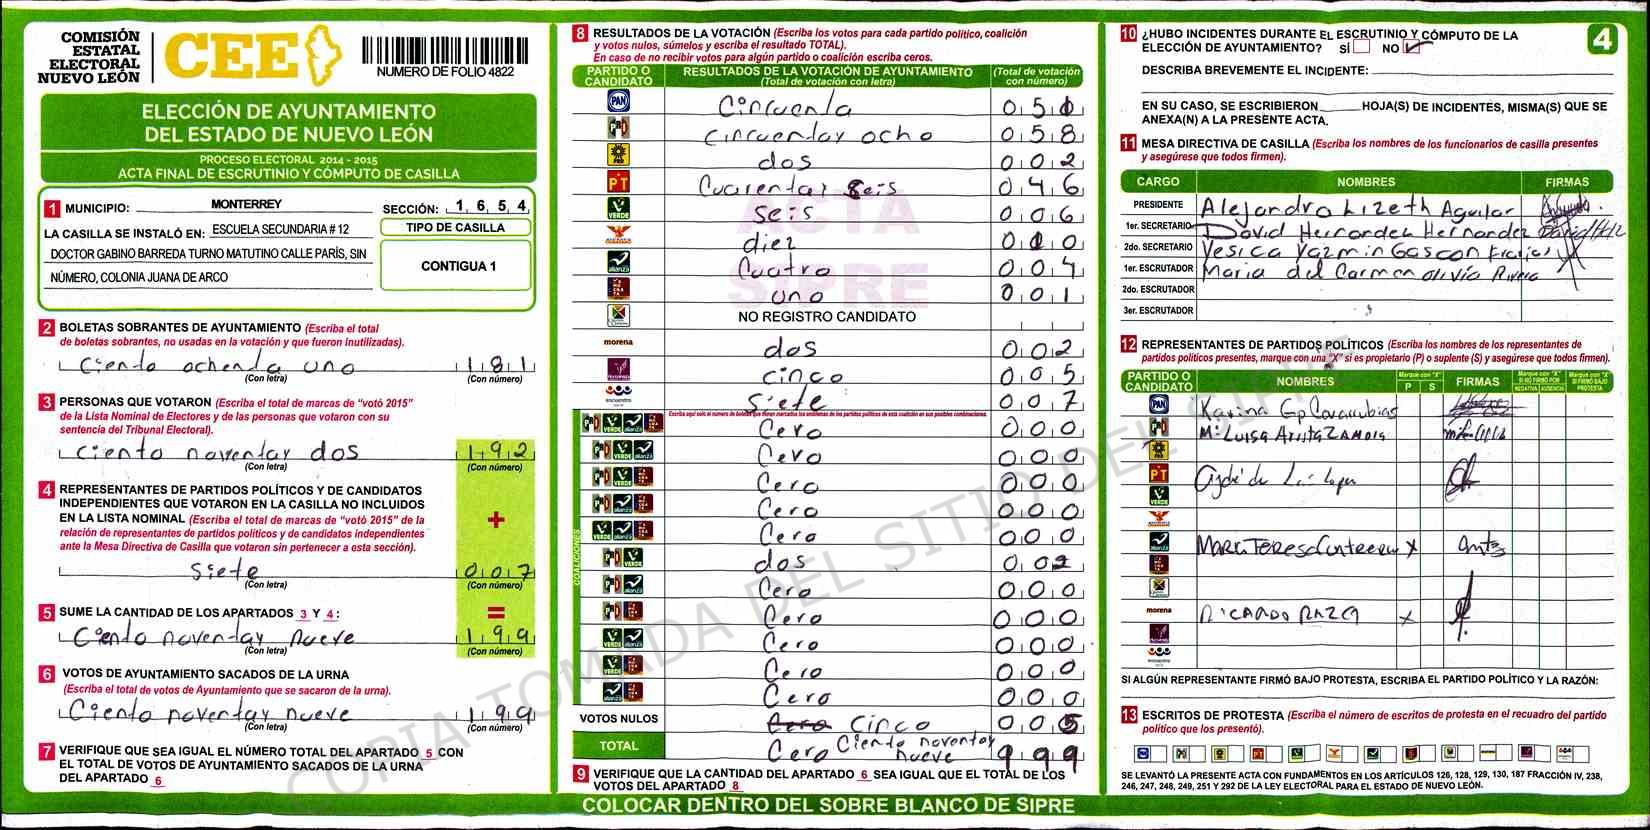 COMISIÓN
ESTATAL
ELECTORAL
NUEVO LEÓN
CEE
NUMERO DE FOLIO 4822
ELECCIÓN DE AYUNTAMIENTO
DEL ESTADO DE NUEVO LEÓN
PROCESO ELECTORAL 2014 - 2015
ACTA FINAL DE ESCRUTINIO Y CÓMPUTO DE CASILLA
1 MUNICIPIO: MONTERREY SECCIÓN: 1,6,5,4
LA CASILLA SE INSTALÓ EN: ESCUELA SECUNDARIA # 12
DOCTOR GABINO BARREDA TURNO MATUTINO CALLE PARÍS, SIN
NÚMERO, COLONIA JUANA DE ARCO
TIPO DE CASILLA
CONTIGUA 1
2 BOLETAS SOBRANTES DE AYUNTAMIENTO (Escriba el total
de boletas sobrantes, no usadas en la votación y que fueron inutilizadas).
Ciento ochenta uno 181
(Con letra) (Con número)
3 PERSONAS QUE VOTARON (Escriba el total de marcas de “votó 2015”
de la Lista Nominal de Electores y de las personas que votaron con su
sentencia del Tribunal Electoral).
Ciento noventay dos 192
(Con letra) (Con número)
4 REPRESENTANTES DE PARTIDOS POLÍTICOS Y DE CANDIDATOS
INDEPENDIENTES QUE VOTARON EN LA CASILLA NO INCLUIDOS
EN LA LISTA NOMINAL (Escriba el total de marcas de “votó 2015” de la
relación de representantes de partidos políticos y de candidatos independientes
ante la Mesa Directiva de Casilla que votaron sin pertenecer a esta sección).
+
siete 007
(Con letra) (Con número)
5 SUME LA CANTIDAD DE LOS APARTADOS 3 Y 4: =
Ciento noventay nueve 199
(Con letra) (Con número)
6 VOTOS DE AYUNTAMIENTO SACADOS DE LA URNA
(Escriba el total de votos de Ayuntamiento que se sacaron de la urna).
Ciento noventay nueve 199
(Con letra) (Con número)
7 VERIFIQUE QUE SEA IGUAL EL NÚMERO TOTAL DEL APARTADO 5 CON
EL TOTAL DE VOTOS DE AYUNTAMIENTO SACADOS DE LA URNA
DEL APARTADO 6
8 RESULTADOS DE LA VOTACIÓN (Escriba los votos para cada partido político, coalición
y votos nulos, súmelos y escriba el resultado TOTAL).
En caso de no recibir votos para algún partido o coalición escriba ceros.
PARTIDO O CANDIDATO RESULTADOS DE LA VOTACIÓN DE AYUNTAMIENTO (Total de votación con letra) (Total de votación con número)
PAN Cincuenta
PRI cincuentay ocho 058
PRD dos 002
PT Cuarentay seis 046
VERDE seis 006
diez 010
alianza Cuatro 004
uno 001
NO REGISTRO CANDIDATO
morena dos 002
cinco 005
encuentro siete 007
Escriba aquí solo el número de boletas que tienen marcados los emblemas de los partidos políticos de esta coalición en sus posibles combinaciones.
COALICIONES
PRI VERDE alianza Cero 000
PRI VERDE alianza Cero 000
PRI VERDE Cero 000
PRI alianza Cero 000
VERDE alianza Cero 000
PRI VERDE dos 002
PRI alianza Cero 000
PRI Cero 000
VERDE alianza Cero 000
VERDE Cero 000
alianza Cero 000
VOTOS NULOS Cero cinco 005
TOTAL Cero Ciento noventay nueve 999
9 VERIFIQUE QUE LA CANTIDAD DEL APARTADO 6 SEA IGUAL QUE EL TOTAL DE LOS
VOTOS DEL APARTADO 8
COLOCAR DENTRO DEL SOBRE BLANCO DE SIPRE
ACTA
SIPRE
COPIA TOMADA DEL SITIO DEL SIPRE
10 ¿HUBO INCIDENTES DURANTE EL ESCRUTINIO Y CÓMPUTO DE LA
ELECCIÓN DE AYUNTAMIENTO? SÍ NO ✓
4
DESCRIBA BREVEMENTE EL INCIDENTE:
EN SU CASO, SE ESCRIBIERON HOJA(S) DE INCIDENTES, MISMA(S) QUE SE
ANEXA(N) A LA PRESENTE ACTA.
11 MESA DIRECTIVA DE CASILLA (Escriba los nombres de los funcionarios de casilla presentes
y asegúrese que todos firmen).
CARGO NOMBRES FIRMAS
PRESIDENTE Alejandra Lizeth Aguilar
1er. SECRETARIO David Hernandez Hernandez
2do. SECRETARIO Yesica Yazmin Gascon Frajas
1er. ESCRUTADOR Maria del Carmen Olivia Rivera
2do. ESCRUTADOR
3er. ESCRUTADOR
12 REPRESENTANTES DE PARTIDOS POLÍTICOS (Escriba los nombres de los representantes de
partidos políticos presentes, marque con una “X” si es propietario (P) o suplente (S) y asegúrese que todos firmen).
PARTIDO O CANDIDATO NOMBRES Marque con “X” P S FIRMAS Marque con “X” SI NO FIRMÓ POR NEGATIVA AUSENCIA Marque con “X” SI FIRMÓ BAJO PROTESTA
PAN Karina Gp Covarrubias
PRI Ma Luisa Arista Zamora
PRD
PT
VERDE
alianza Maria Teresa Contreras X
morena RICARDO RAZO X
encuentro
SI ALGÚN REPRESENTANTE FIRMÓ BAJO PROTESTA, ESCRIBA EL PARTIDO POLÍTICO Y LA RAZÓN:
13 ESCRITOS DE PROTESTA (Escriba el número de escritos de protesta en el recuadro del partido
político que los presentó).
SE LEVANTÓ LA PRESENTE ACTA CON FUNDAMENTOS EN LOS ARTÍCULOS 126, 128, 129, 130, 187 FRACCIÓN IV, 238,
246, 247, 248, 249, 251 Y 292 DE LA LEY ELECTORAL PARA EL ESTADO DE NUEVO LEÓN.